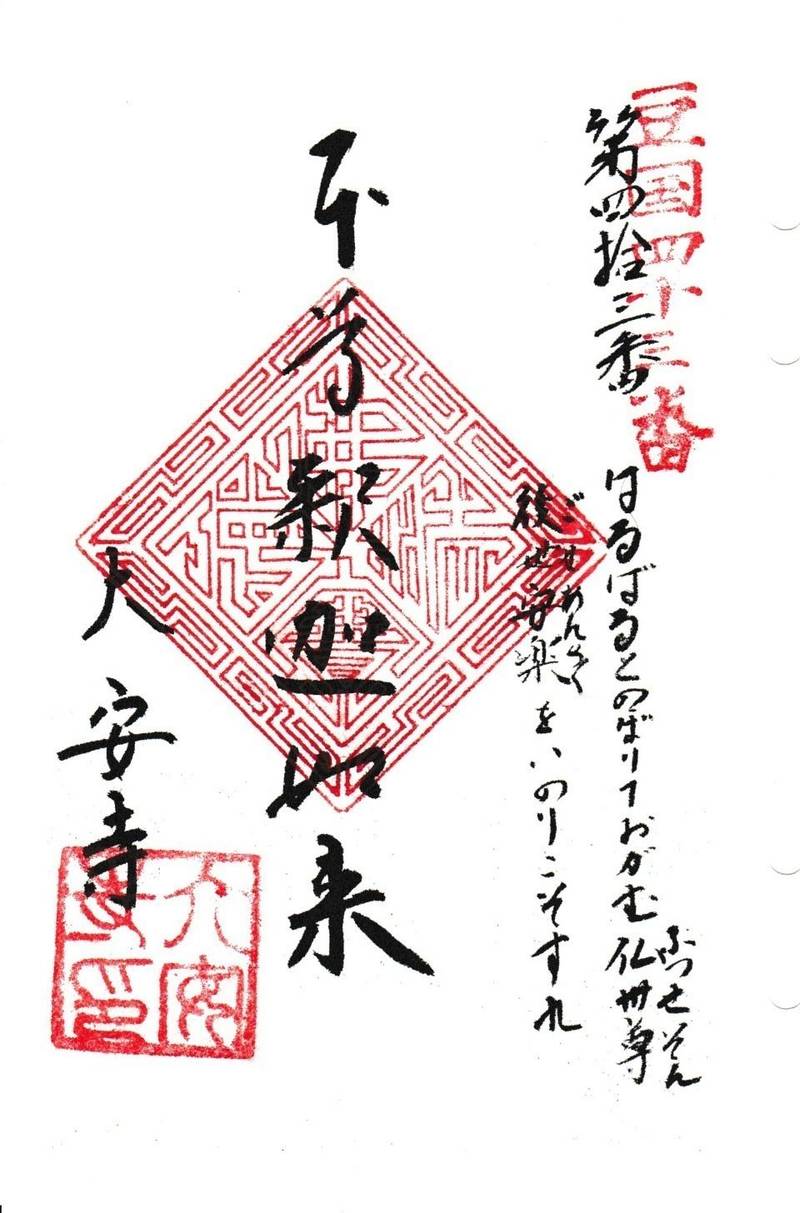 豆国四十三番
第四拾三番
はるばるとのぼりておがむ仏世尊
ぶつせそん
後世安楽をいのりこそすれ
ごせあんらく
本尊釈迦如来
大安寺
大安
寺印